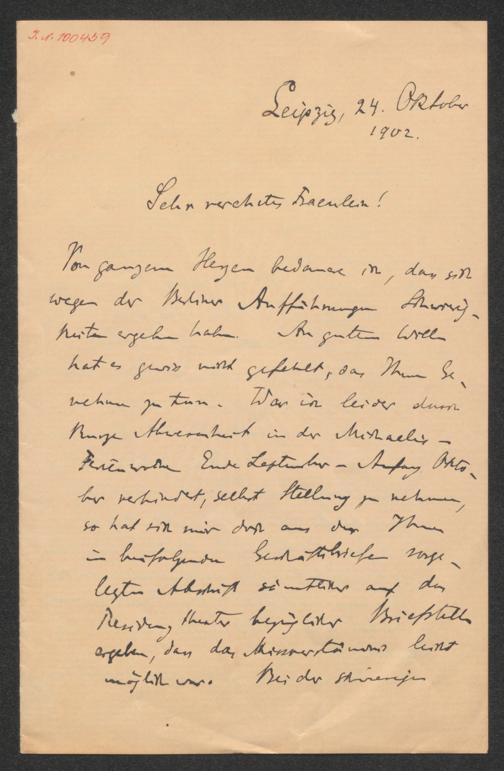 I.N. 100459
Leipzig, 24. Oktober
1902.
Sehr verehrtes Fraeulein!
Von ganzem Herzen bedaure ich, dass sich
wegen der Berliner Aufführungen Schwierig-
keiten ergeben haben. An gutem Willen
hat es gewiss nicht gefehlt, das Ihnen Ge-
nehme zu tun. War ich leider durch
kurze Abwesenheit in der Michaelis-
Ferienwoche Ende September - Anfang Okto-
ber verhindert, selbst Stellung zu nehmen,
so hat sich mir doch aus der Ihnen
in beifolgenden Geschäftsbriefen vorge-
legten Abschrift sämtlicher auf das
Residenztheater bezüglicher Briefstellen
ergeben, dass das Missverständnis leicht
möglich war. Bei der schwierigen